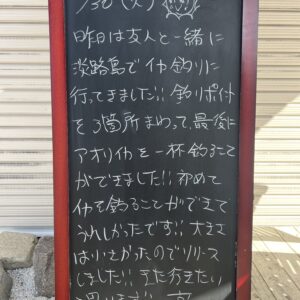 /30 (火)
昨日は友人と一緒に
淡路島でイカ釣りに
行ってきました!! 釣りポイント
を3箇所まわって、最後に
アオリイカを一杯釣ること
ができました!! 初めて
イカを釣ることができて
うれしかったです!! 大きさ
は小さかったのでリリース
しました!! また行きたい